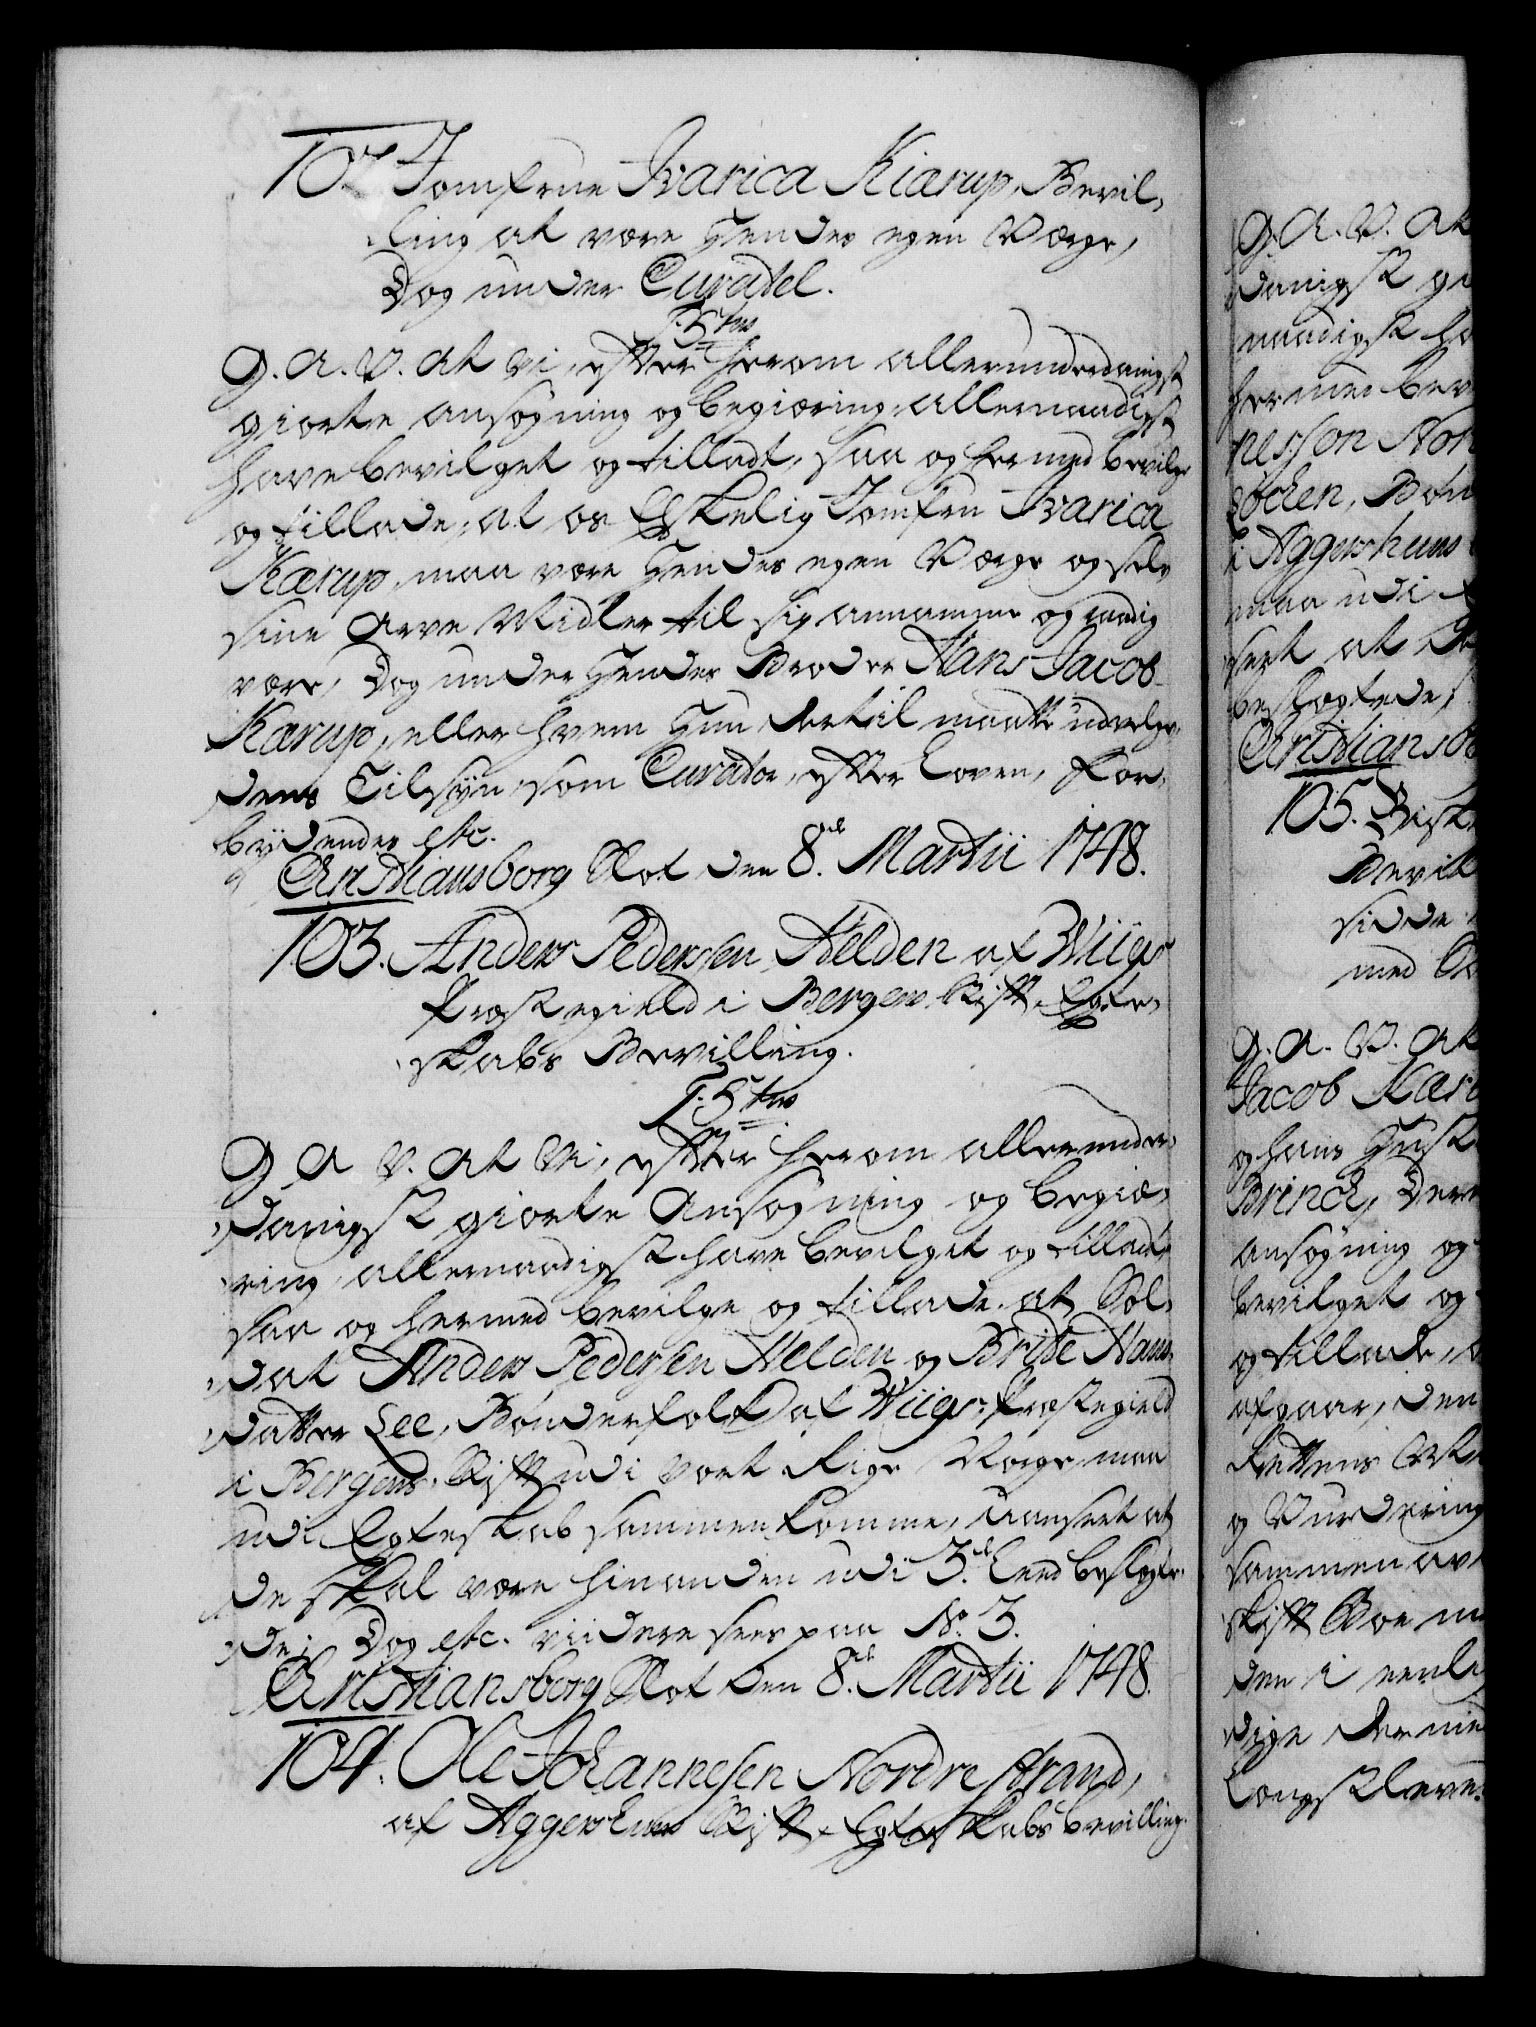 102. Jomfrue Ivarica Kiærup, Bevil-
ling at være Hendes egen Værge,
Dog under Curatel.
G. A. V. At Vi, efter herom allerunderdanigst
giorte ansøgning og begiæring, allernaadigst
have bevilget og tilladt, saa og hermed bevilge
og tillade, at os Elskelig Jomfru Ivarica
Kærup, maa være Hendes egen Værge og selv
sine Arve Midler til sig annamme og raadig
være, Dog under Hendes Broder Hans Jacob
Kærup, eller hvem Hun dertil maatte udvælge,
dens Tilsyn, som Curator, efter Loven, For-
bydendes etc.
Christiansborg Slot den 8de Martii 1748.
103. Anders Pedersen Helden af Wiigs
Præstegield i Bergens Stift, Egte-
skabs Bevilling.
G A V. At Vi, efter herom allerunder-
danigst giorte Ansøgning og begiæ-
ring, allernaadigst have bevilget og tilladt,
saa og hermed bevilge og tillade, at Sol-
dat Anders Pedersen Helden og Britte Hans
datter Lee, Bønderfolk af Wiigs Præstegield
i Bergens Stift udi vort Rige Norge, maa
udi Egteskab sammenkomme, uanseet at
de skal være hinanden udi 3die Leed beslægte-
de; Dog etc. viidere sees paa No. 3.
Christiansborg Slot den 8de Martii 1748.
104. Ole Johannesen Nordre strand,
af Aggershuus Stift, Egteskabs bevilling.
G. A. V. At
danigst gi
naadigst ha
hermed bev
nesson Nor
i Aggershuus
maa udi
seet at De
beslægtede,
Christiansb
105.
Bevil
sidde
med
G. A. V. At
Jacob Kær
og hans Hust
Brinck, Der
ansøgning og
bevilget og
og tillade, a
afgaar, den
Rettens
og Vurdering
sammen
skift Boe